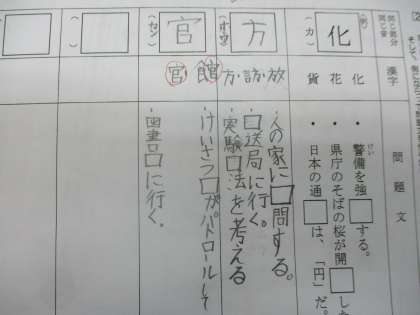 同じ部分
同じ音
漢字
問題文
(例)
化
(カ)
化 花 貨
・警備を強□する。
けい
・県庁のそばの桜が開□した
・日本の通□は、「円」だ。
方
(ホウ)
放・訪・方
・人の家に□問する。
・□送局に行く。
・実験□法を考える
官
(カン)
館 官
・けいさつ□がパトロールして
・図書□に行く。